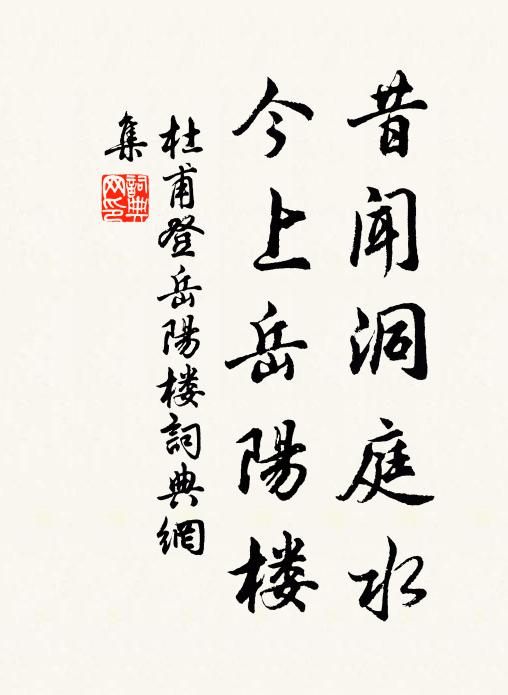 昔闻洞庭水
今上岳陽楼
杜甫登岳陽楼詞典網
集
詞典网印